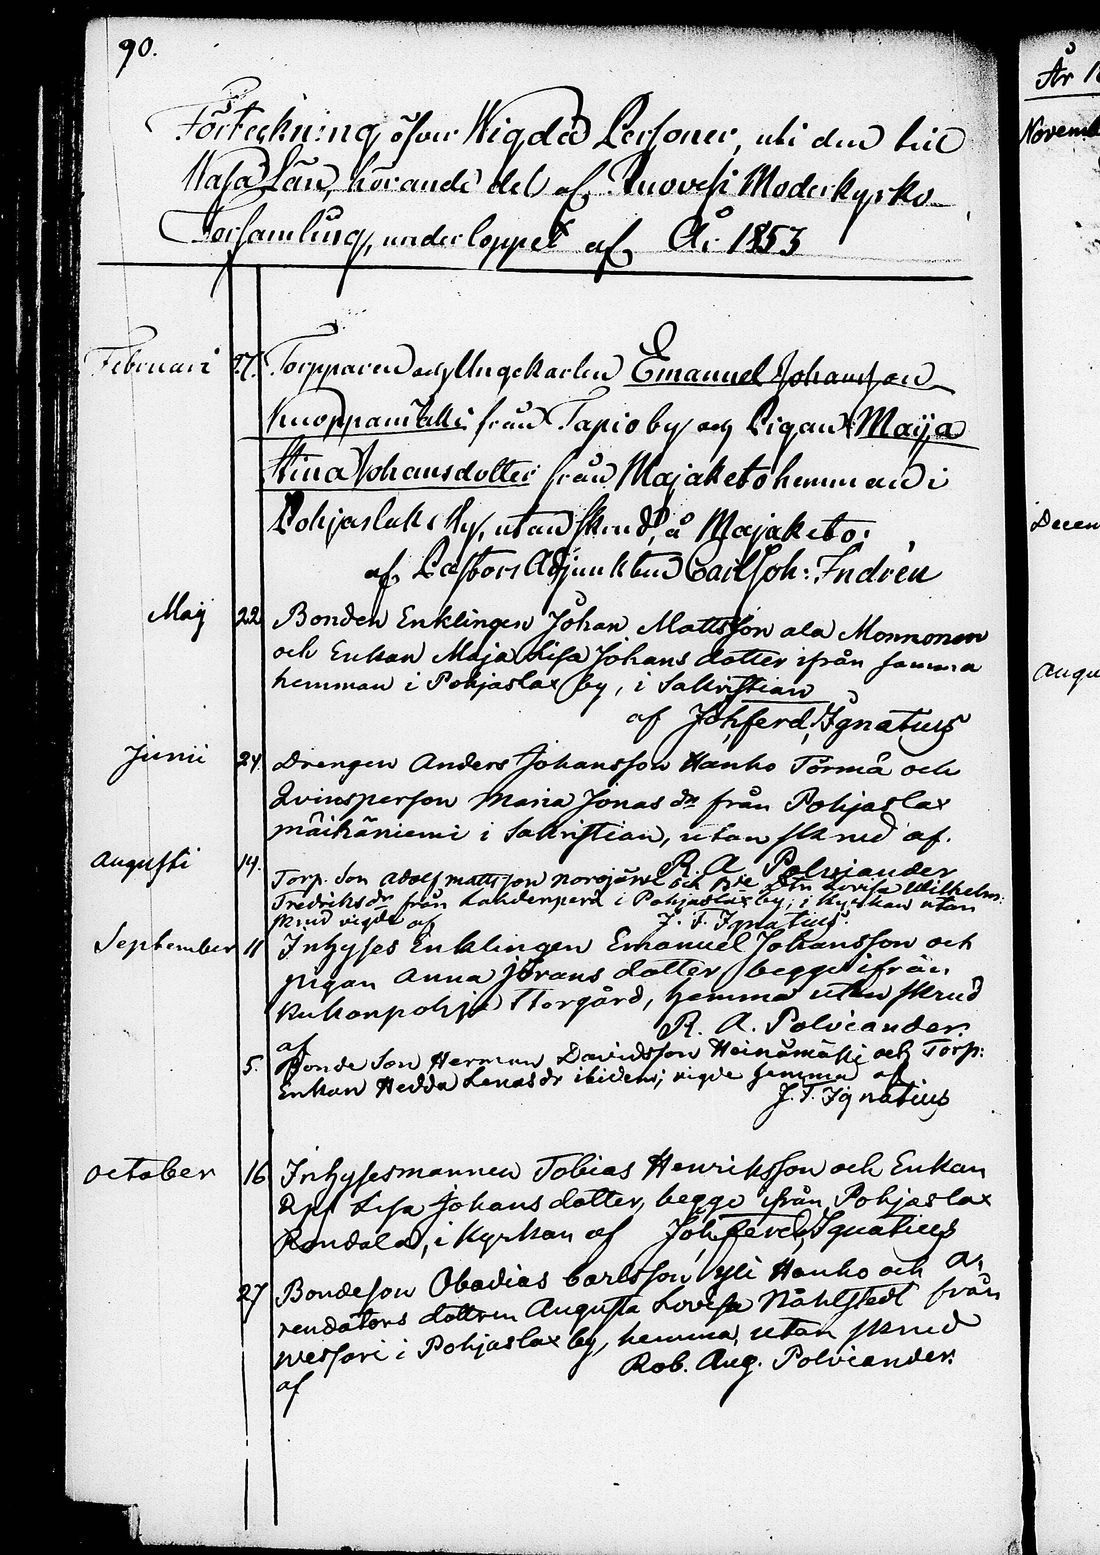 90.
Förteckning öfver Wigda Personer, uti den till
Wasa Län, hörande del af Ruovesi Moderkyrko-
Församling, under loppet af År 1853
Februari 27. Torpparen och Ungekarlen Emanuel Johansson
Knoppamäki från Tapio by och Pigan Maija
Stina Johansdotter från Majaketo hemman i
Pohjaslaks by, utan skrud, å Majaketo.
af Pastors Adjunkten Carl Joh: Indrén
Maij 22 Bonden Enklingen Johan Mattsson ala Monnonen
och Enkan Maja Lisa Johans dotter ifrån samma
hemman i Pohjaslax by, i Sakristian
af Joh, ferd, Ignatius
Junii 24. Drengen Anders Johansson Hanho Törmä och
Qvinsperson Maria Jonas dr från Pohjaslax
mäikäniemi i Sakristian, utan skrud af.
R. A. Polviander
Augusti 14. Torp. Son Adolf Mattsson norojärvi och Lovisa Wilhelm.
Fredriks dr från Lahdenperä i Pohjaslax by, i Kyrkan utan
skrud vigde af J. F. Ignatius.
September 11 Inhyses Enklingen Emanuel Johansson och
pigan Anna Jörans dotter, begge ifrån
Kukonpohja Storgård, hemma utan skrud
af R. A. Polviander.
5. Bonde Son Herman Davidsson Heinämäki och Torp:
Enkan Hedda Lenas dr ibidem; vigde hemma af
J. F. Ignatius
October 16 Inhysesmannen Tobias Henriksson och Enkan
Lisa Johans dotter, begge ifrån Pohjaslax
Rändälä, i Kyrkan af Joh, ferd, Ignatius
27 Bondeson Obadias Carlsson Yli Hanho och Ar,
rendators dottren Augusta Lovisa Nåhlstedt från
wessari i Pohjaslax by, hemma, utan skrud
af Rob. Aug. Polviander.
År 18
Novemb
Decem
Augu